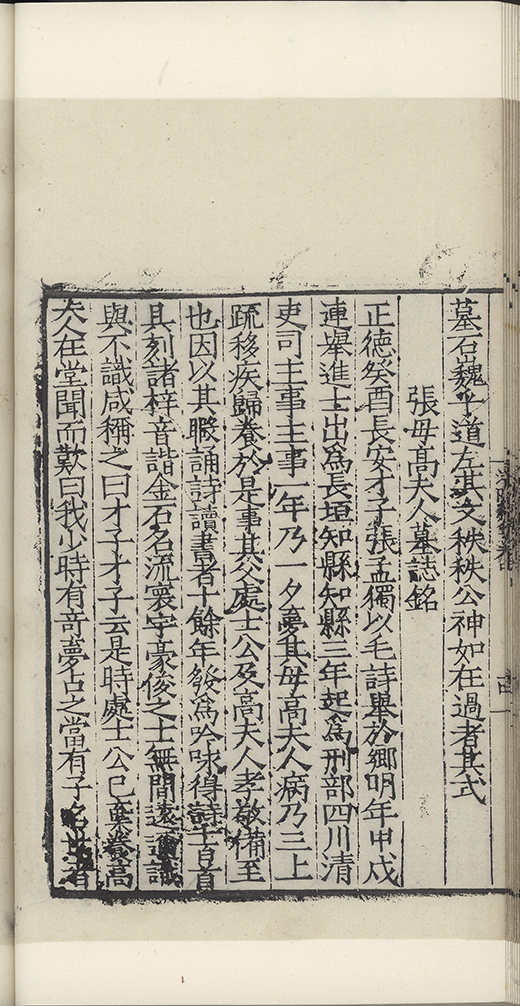 墓石巍巍道左其文秩秩公神如在過者其式
張母高夫人墓誌銘
正德癸酉長安才子張孟獨以毛詩舉於鄉明年甲戌
連舉進士出爲長垣知縣知縣三年起爲刑部四川清
吏司主事主事一年乃一夕夢其母高夫人病乃三上
疏移疾歸養於是事其父處士公及高夫人孝敬備至
也因以其暇誦詩讀書者十餘年發爲吟咏得詩千百首
具刻諸梓音諧金石名流寰宇豪俊之士無間遠邇識
與不識咸稱之曰才子才子云是時處士公已棄養高
夫人在堂聞而歎曰我少時有奇夢占之當有子名世者